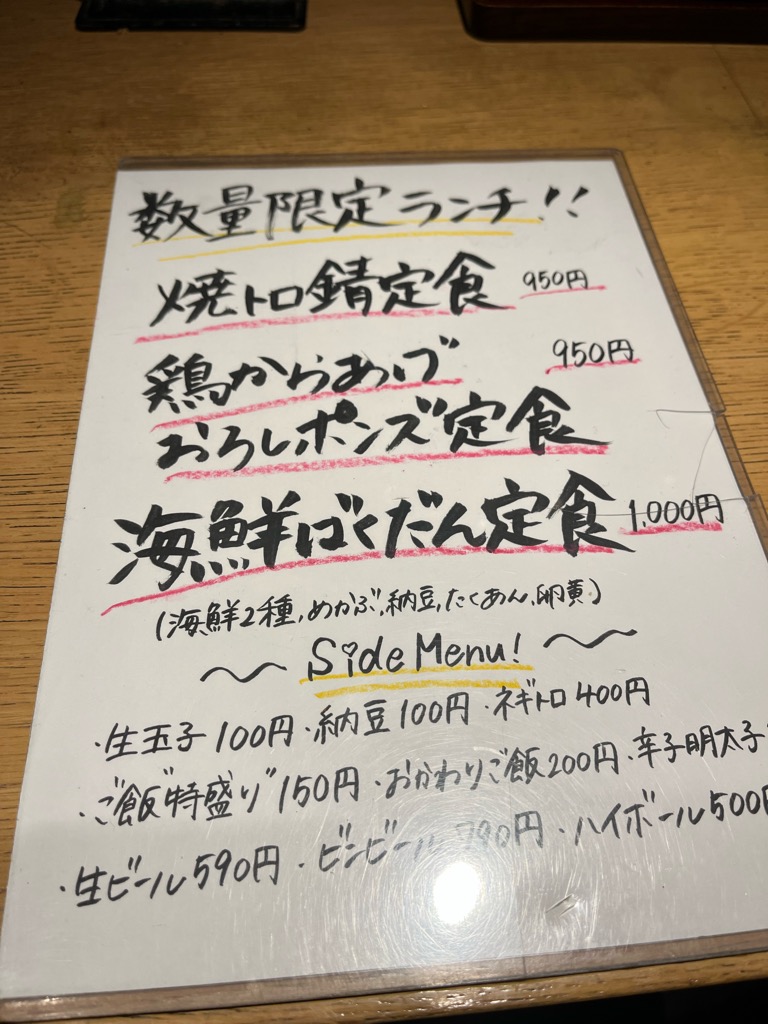 数量限定ランチ!!
焼トロ錆定食 950円
鶏からあげ 950円
おろしポンズ定食
海鮮ばくだん定食 1,000円
(海鮮2種,めかぶ,納豆,たくあん,卵黄)
Side Menu!
・生玉子100円・納豆100円・ネギトロ400円
・ご飯"特盛り"150円・おかわりご飯200円・辛子明太子
・生ビール590円・ビンビール790円・ハイボール500円